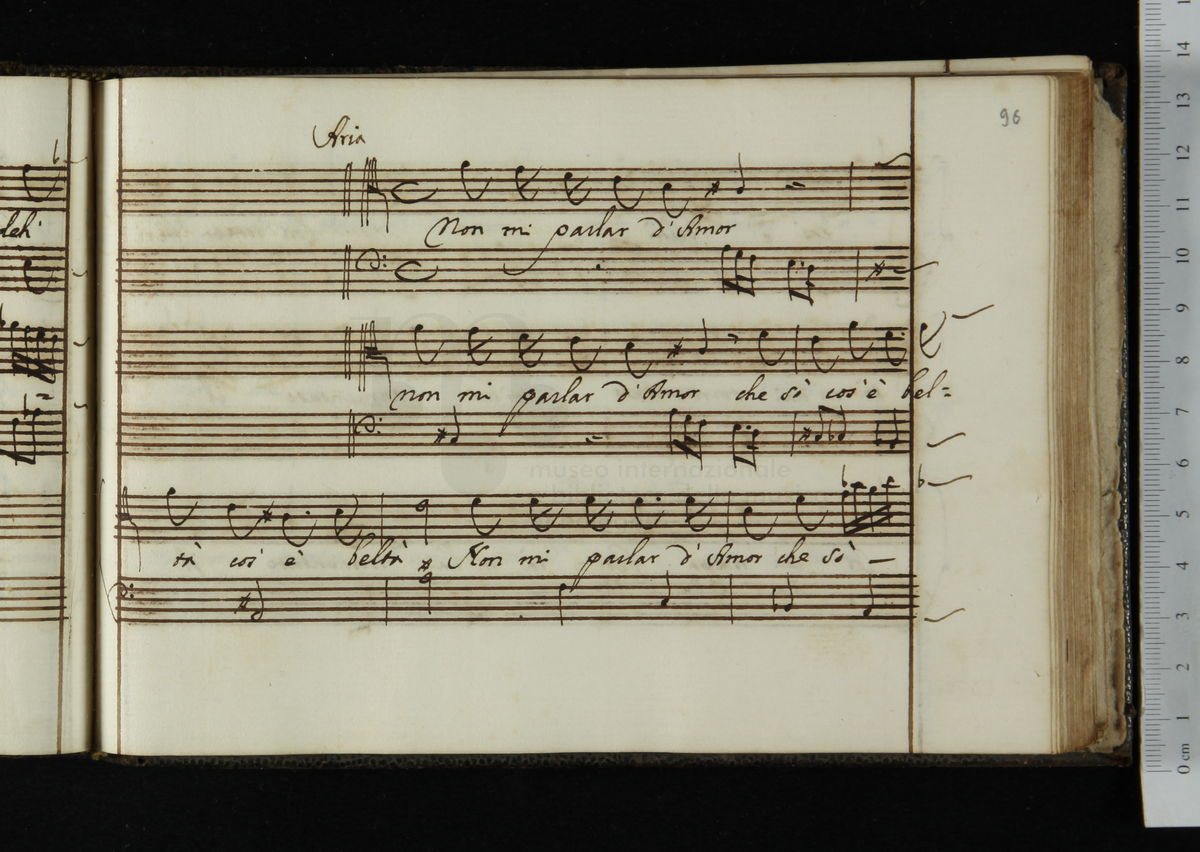 96
Aria
deh'
Non mi parlar d'Amor
non mi parlar d'Amor che sò cos'è bel=
museo internazionale
tà cos' è beltà Non mi parlar d'Amor che sò —
0 cm 1 2 3 4 5 6 7 8 9 10 11 12 13 14